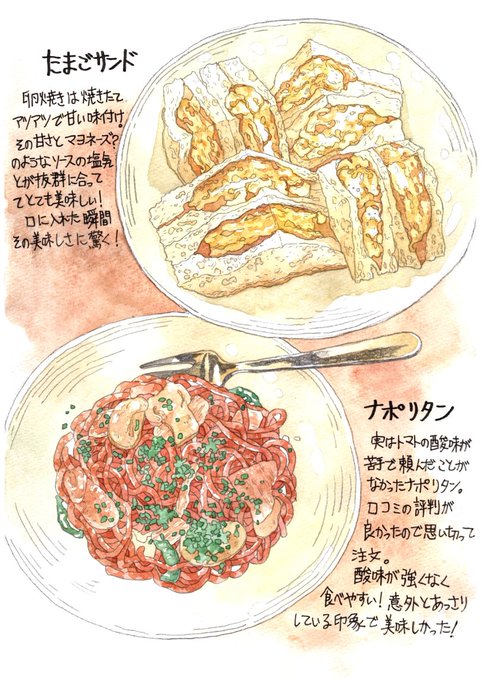 たまごサンド
卵焼きは焼きたて
アツアツで甘い味付け。
その甘さとマヨネーズ?
のようなソースの塩気
とが抜群に合って
てとても美味しい!
口に入れた瞬間
その美味しさに驚く!
ナポリタン
実はトマトの酸味が
苦手で頼んだことが
なかったナポリタン。
口コミの評判が
良かったので思い切って
注文。
酸味が強くなく
食べやすい!意外とあっさり
している印象で美味しかった!